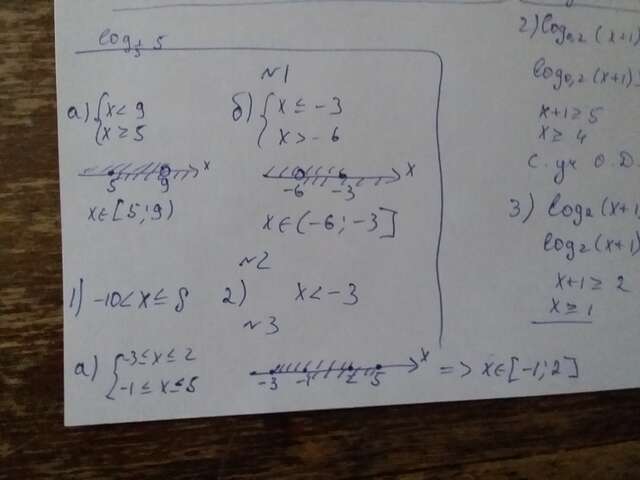 log 5
№1
а) { x < 9
x ≥ 5
б) { x ≤ -3
x > -6
5 9 x
-6 -3 x
x∈[5;9)
x∈(-6;-3]
№2
1) -10 < x ≤ 8
2) x < -3
№3
а) { -3 ≤ x ≤ 2
-1 ≤ x ≤ 5
-3 -1 2 5 x
=> x∈[-1;2]
2) log0,2 (x+1)
log0,2 (x+1)
x+1 ≥ 5
x ≥ 4
С. уч О.Д.
3) log2 (x+1
log2 (x+1)
x+1 ≥ 2
x ≥ 1